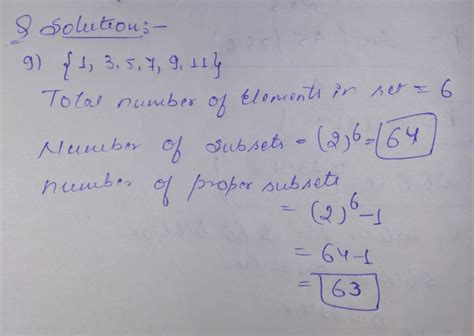 § Solution:-
9) {1, 3, 5, 7, 9, 11}
Total number of Elements in set = 6
Number of subsets = (2)⁶ = 64
number of proper subsets
= (2)⁶ - 1
= 64 - 1
= 63